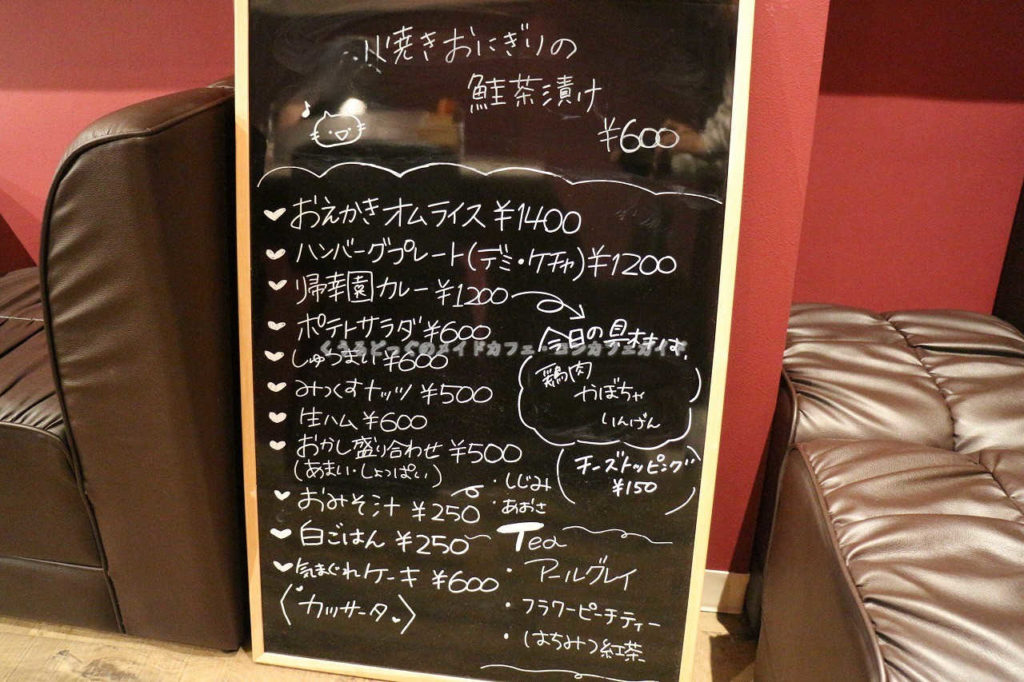 焼きおにぎりの
鮭茶漬け
¥600
おえかきオムライス ¥1400
ハンバーグプレート(デミ・ケチャ)¥1200
帰幸園カレー ¥1200
ポテトサラダ ¥600
今日の具材は、
くうるどっぐのメイドカフェ・コンカフェガイド
しゅうまい ¥600
鶏肉
かぼちゃ
いんげん
みっくすナッツ ¥500
生ハム ¥600
おかし盛り合わせ ¥500
(あまい・しょっぱい)
チーズトッピング
¥150
おみそ汁 ¥250
・しじみ
・あおさ
白ごはん ¥250
気まぐれケーキ ¥600
〈カッサータ〉
Tea
・アールグレイ
・フラワーピーチティー
・はちみつ紅茶